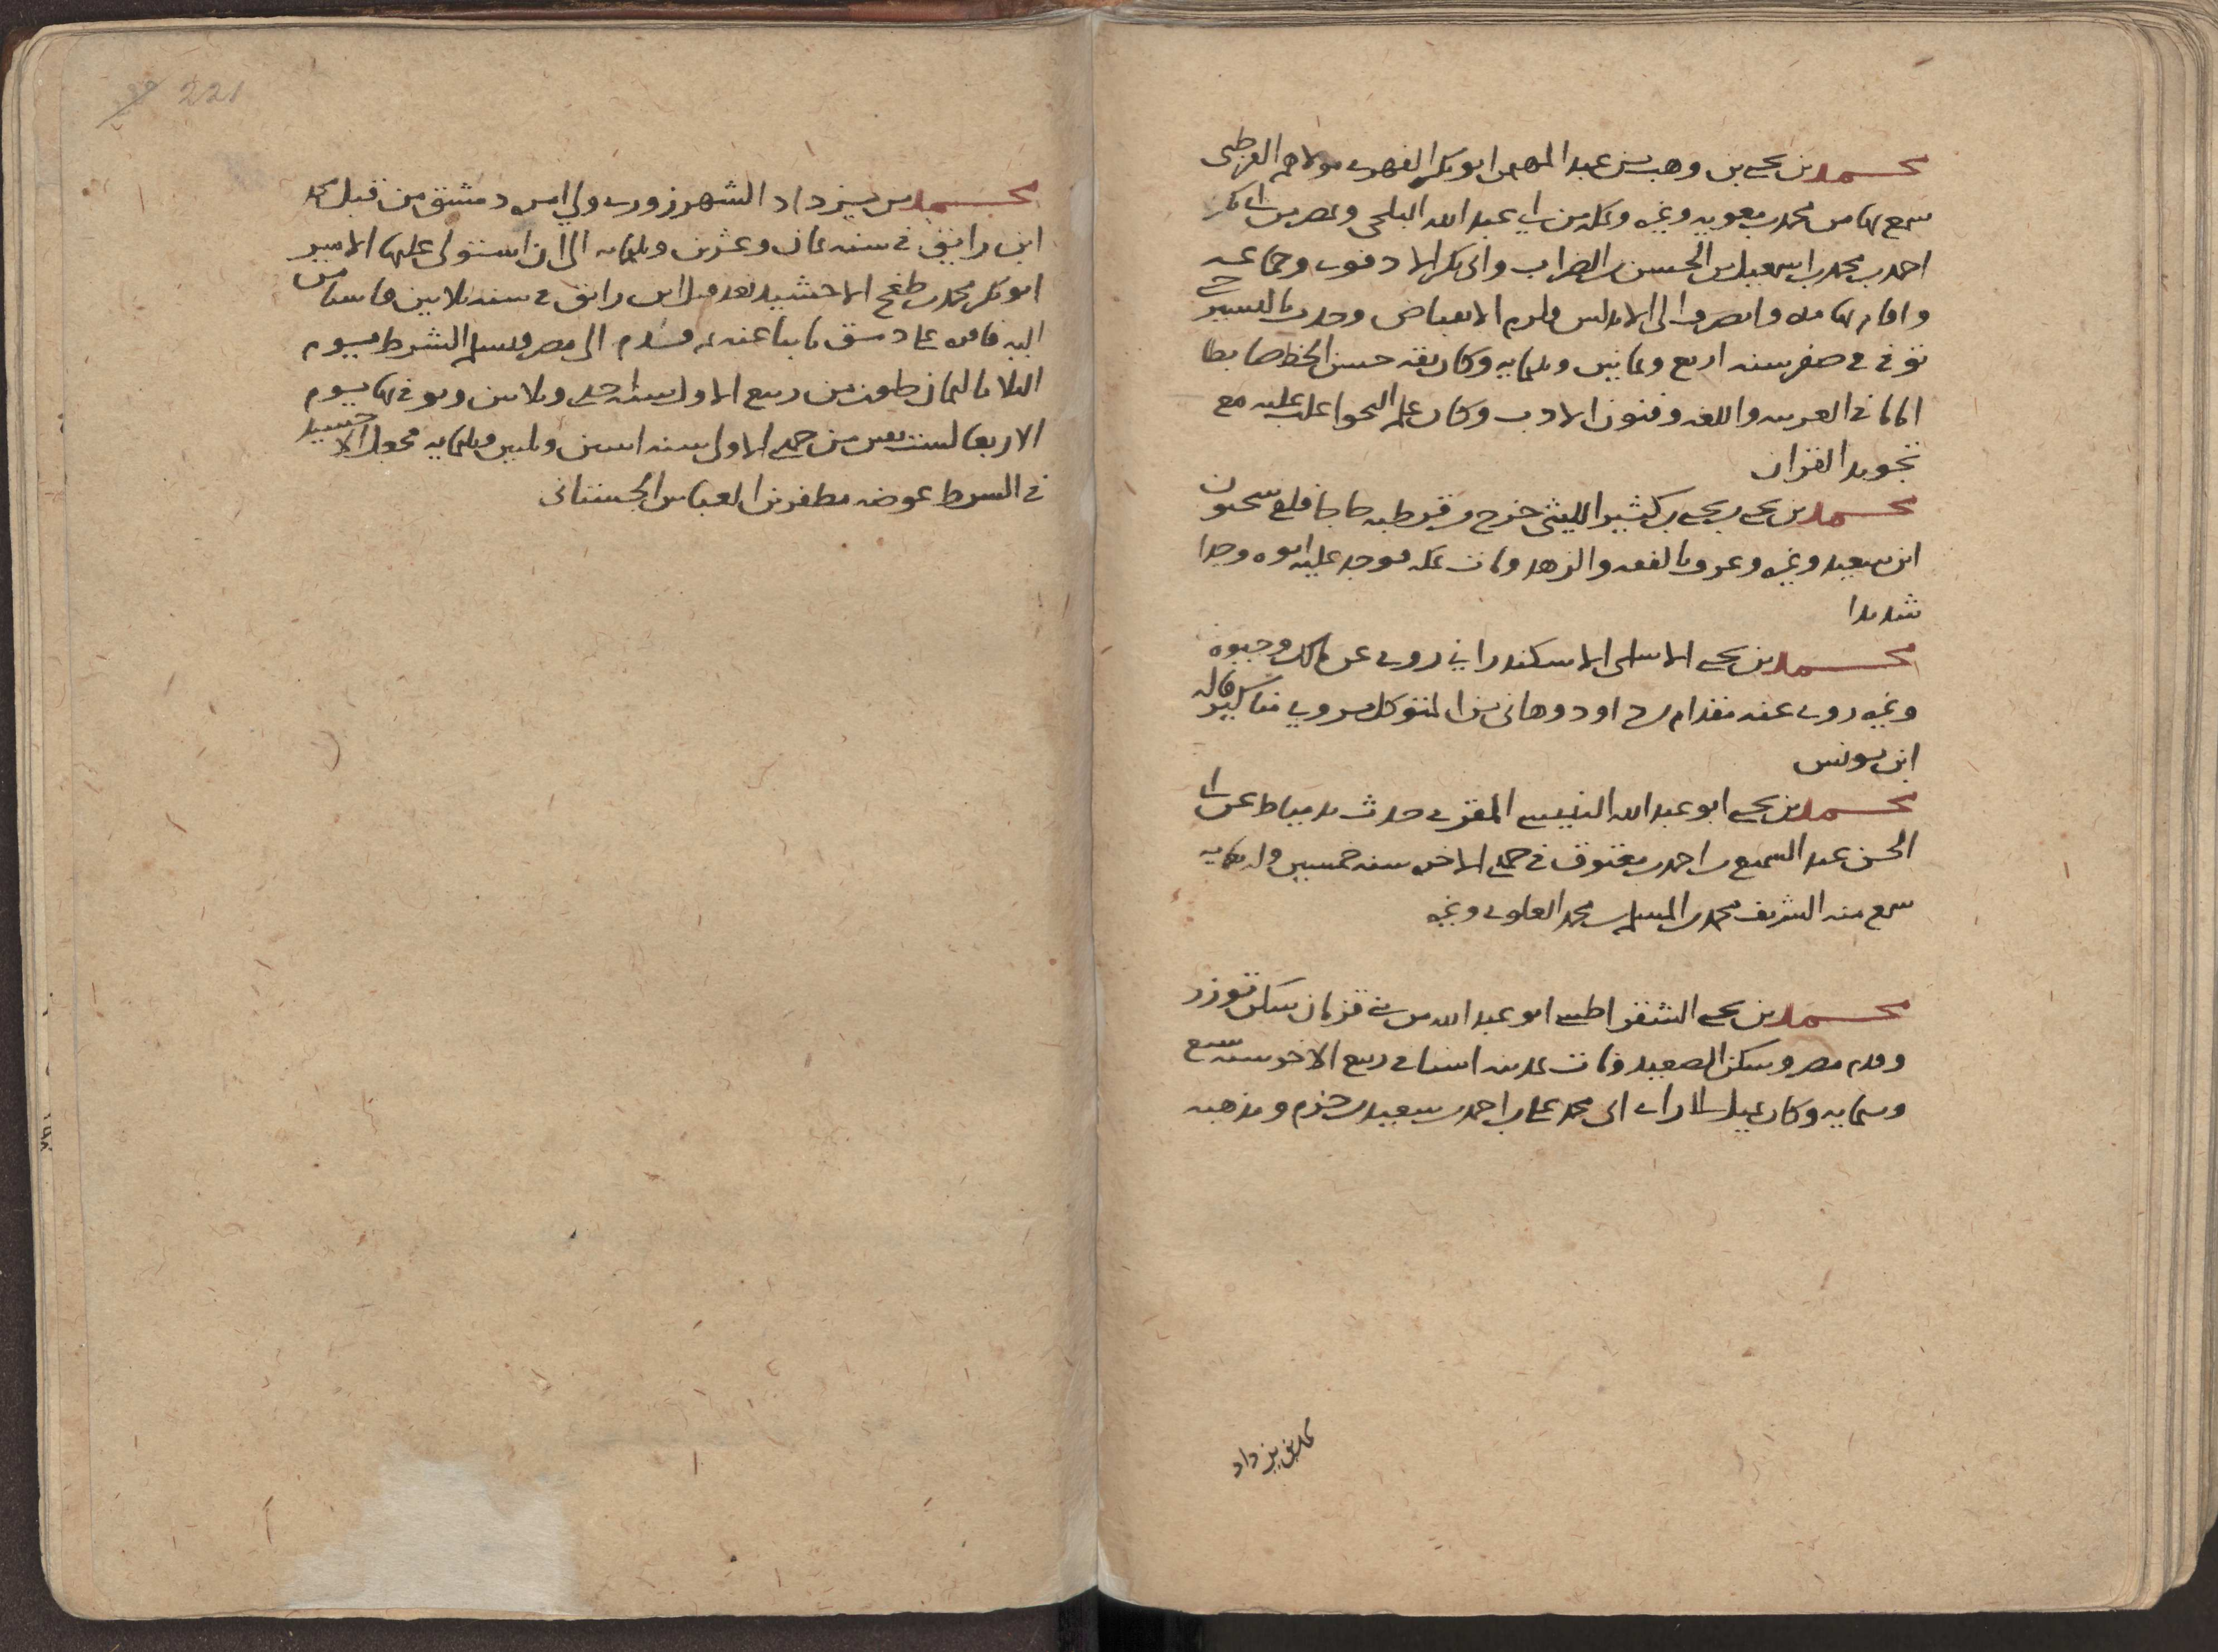 محمد بن يحيى بن وهب بن عبد المهيمن ابو بكر الفهرى مولاهم القرطبى
سمع بها من محمد بن معويه وغيره وبمكه من ابى عبد الله البلخى وبمصر من ابى بكر
احمد بن محمد بن اسمعيل بن الحسن بن الضراب وابى بكر الادفوى وجماعه
واقام بها مده وانصرف الى الاندلس ولزم الانقباض وحدث باليسير
توفى فى صفر سنه اربع وثمانين وثلثمايه وكان ثقه حسن الخط ضابطا
اماما فى العربيه واللغه وفنون الادب وكان علم النحو اغلب عليه مع
تجويد القران
محمد بن يحيى بن يحيى بن كثير الليثى خرج من قرطبه حاجا فلقى سحنون
ابن سعيد وغيره وعرف بالفقه والزهد ومات بمكه فوجد عليه ابوه وجدا
شديدا
محمد بن يحيى الاسلمى الاسكندرانى روى عن مالك وحيوه
وغيره روى عنه مقدام بن داود وهانى بن المتوكل يروى مناكير قاله
ابن يونس
محمد بن يحيى ابو عبد الله التنيسى المقرى حدث بدمياط عن ابى
الحسن عبد السميع بن احمد بن معتوق فى جمادى الاخره سنه خمسين واربعمايه
سمع منه الشريف محمد بن المسلم بن محمد العلوى وغيره
محمد بن يحيى الشقراطسى ابو عبد الله من بنى قزمان سكن توزر
وقدم مصر وسكن الصعيد ومات بمدينه اسنا فى ربيع الاخر سنه سبع
وستمايه وكان يميل الى اراء ابى محمد على بن احمد بن سعيد بن حزم ومذهبه
محمد بن يزداد
221
محمد بن يزداد الشهرزورى ولى امره دمشق من قبل محمد
ابن رايق فى سنه ثمان وعشرين وثلثمايه الى ان استولى عليها الامير
ابو بكر محمد بن طغج الاخشيد بعد قتل ابن رايق فى سنه ثلاثين فاستامن
اليه فاقره على دمشق نايبا عنه ثم قدم الى مصر وتسلم الشرط يوم
الثلاثا لثمان خلون من ربيع الاول سنه احدى وثلاثين وتوفى بها يوم
الاربعا لست بقين من جمادى الاولى سنه اثنين وثلثين وثلثمايه فجعل الاخشيد
فى الشرط عوضه مظفر بن العباس